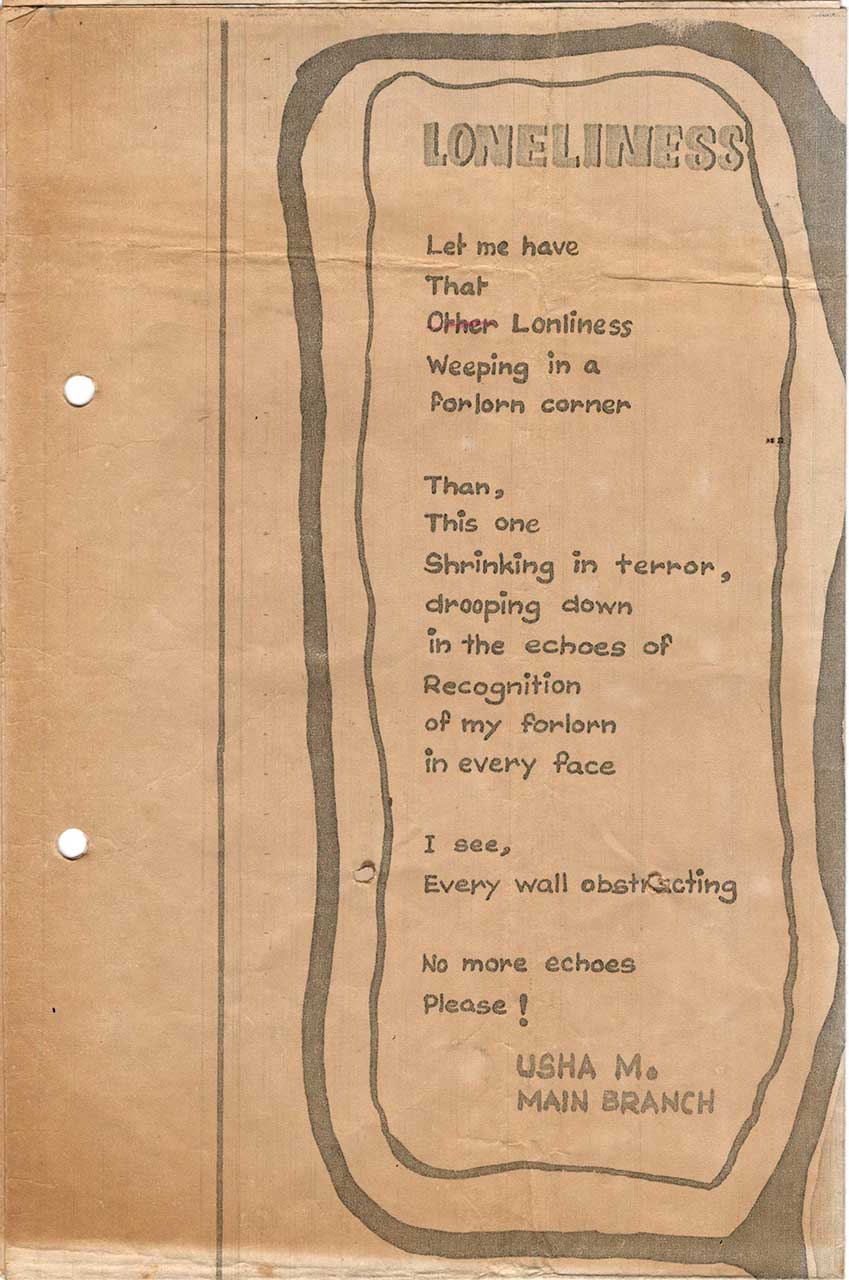 LONELINESS
Let me have
That
Other Lonliness
Weeping in a
forlorn corner
Than,
This one
Shrinking in terror,
drooping down
in the echoes of
Recognition
of my forlorn
in every face
I see,
Every wall obstracting
No more echoes
Please!
USHA M.
MAIN BRANCH